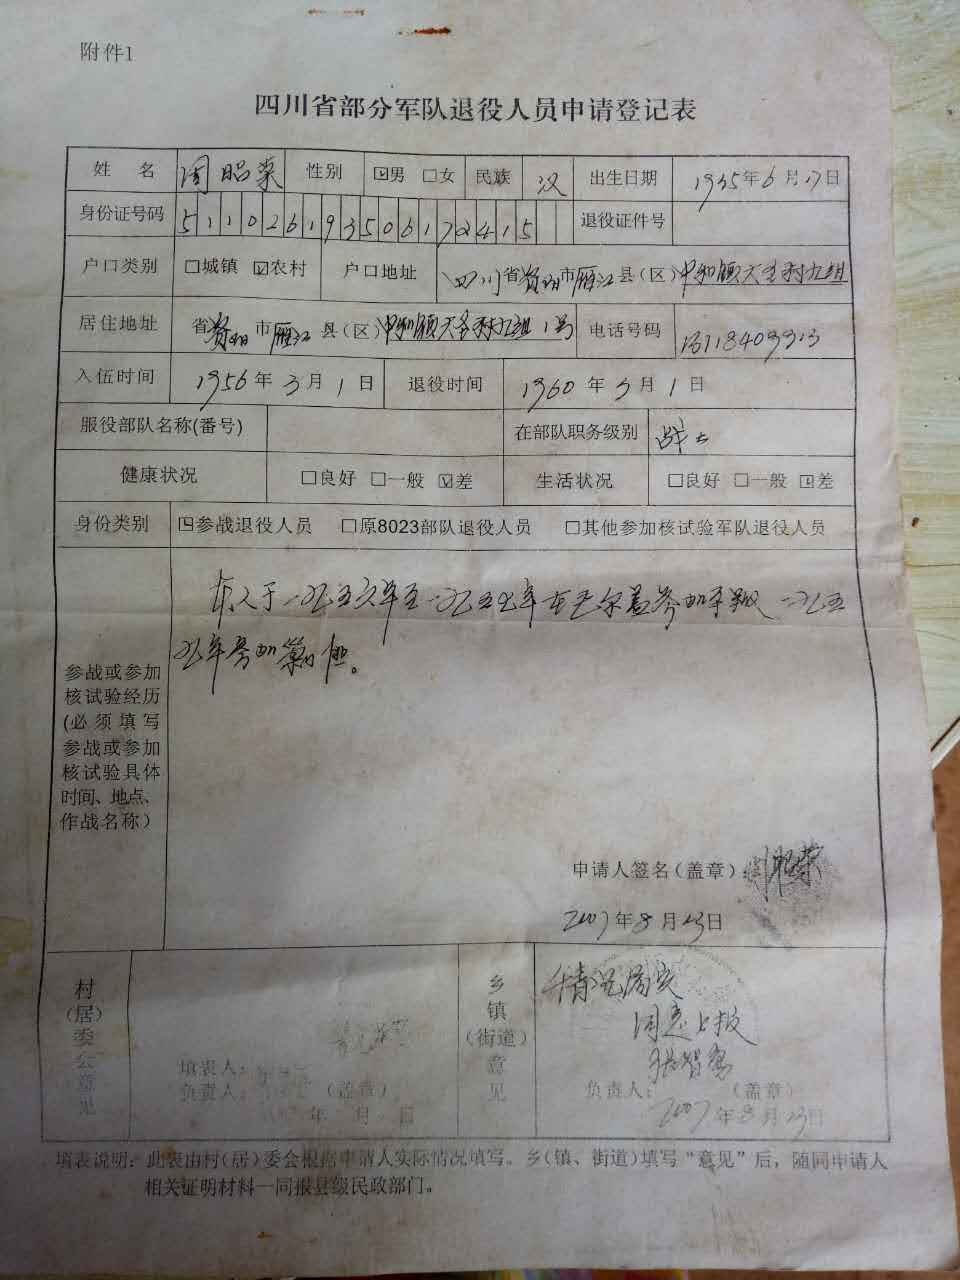 附件1
四川省部分军队退役人员申请登记表
姓名 周昭荣 性别 ☑男 □女 民族 汉 出生日期 1935年6月17日
身份证号码 511026193506172415 退役证件号
户口类别 □城镇 ☑农村 户口地址 四川省资阳市雁江县（区）中和镇天圣村九组
居住地址 省资阳市雁江县（区）中和镇天圣村九组1号 电话号码
入伍时间 1956年3月1日 退役时间 1960年3月1日
服役部队名称(番号) 在部队职务级别 战士
健康状况 □良好 □一般 ☑差 生活状况 □良好 □一般 ☑差
身份类别 ☑参战退役人员 □原8023部队退役人员 □其他参加核试验军队退役人员
本人于一九五六年至一九五七年在 参加平叛 一九五
九年参加
参战或参加
核试验经历
(必须填写
参战或参加
核试验具体
时间、地点、
作战名称)
申请人签名(盖章)：周昭荣
2007年8月23日
村(居)委会意见
填表人：
负责人： (盖章)
年 月 日
乡镇(街道)意见
情况属实
同意上报
负责人： (盖章)
2007年8月23日
填表说明：此表由村(居)委会根据申请人实际情况填写。乡(镇、街道)填写“意见”后，随同申请人
相关证明材料一同报县级民政部门。